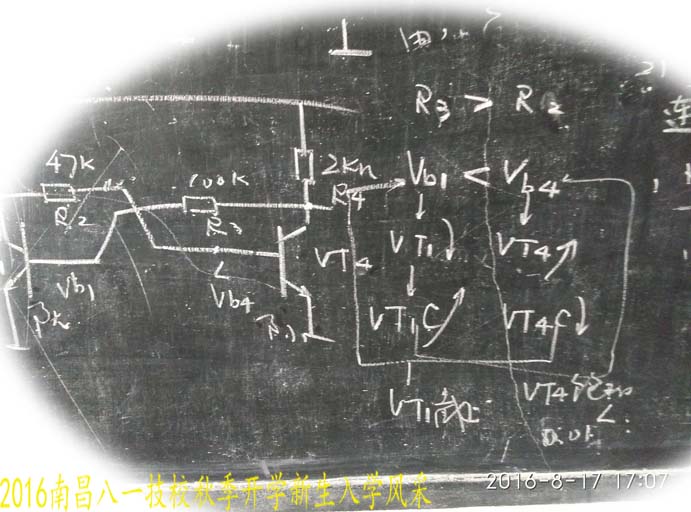 R3 > R2
47K
R2
100K
R3
2KΩ
R4
Vb1 < Vb4
VT4
VT1 VT4
Vb1
Vb4
VT1C VT4C
VT1截止
VT4饱和
2016南昌八一技校秋季开学新生入学风采
2016-8-17 17:07